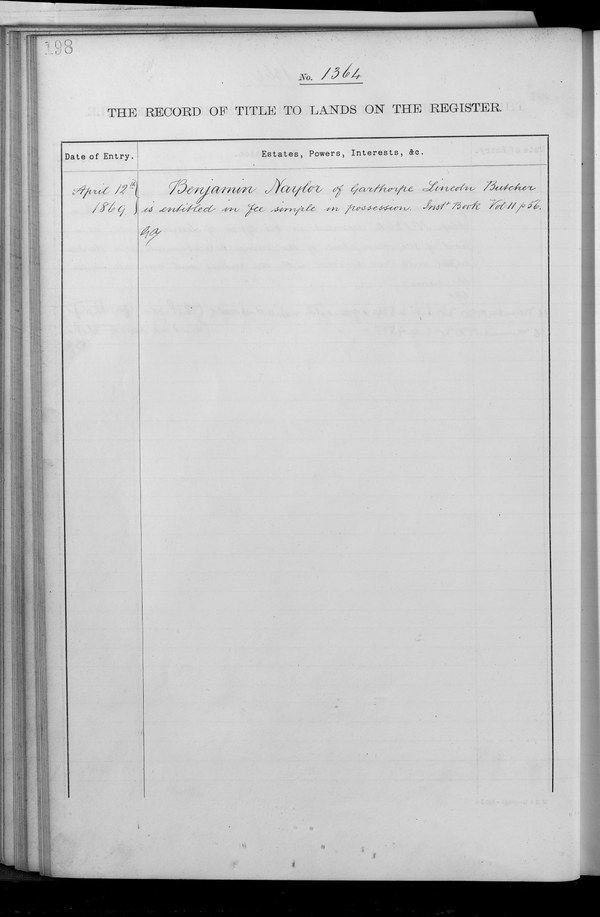 198
No. 1364
THE RECORD OF TITLE TO LANDS ON THE REGISTER.
Date of Entry.
Estates, Powers, Interests, &c.
April 12th
1869
Benjamin Naylor of Garthorpe Lincoln Butcher
is entitled in fee simple in possession. Inst. Book Vol 11 p 56.